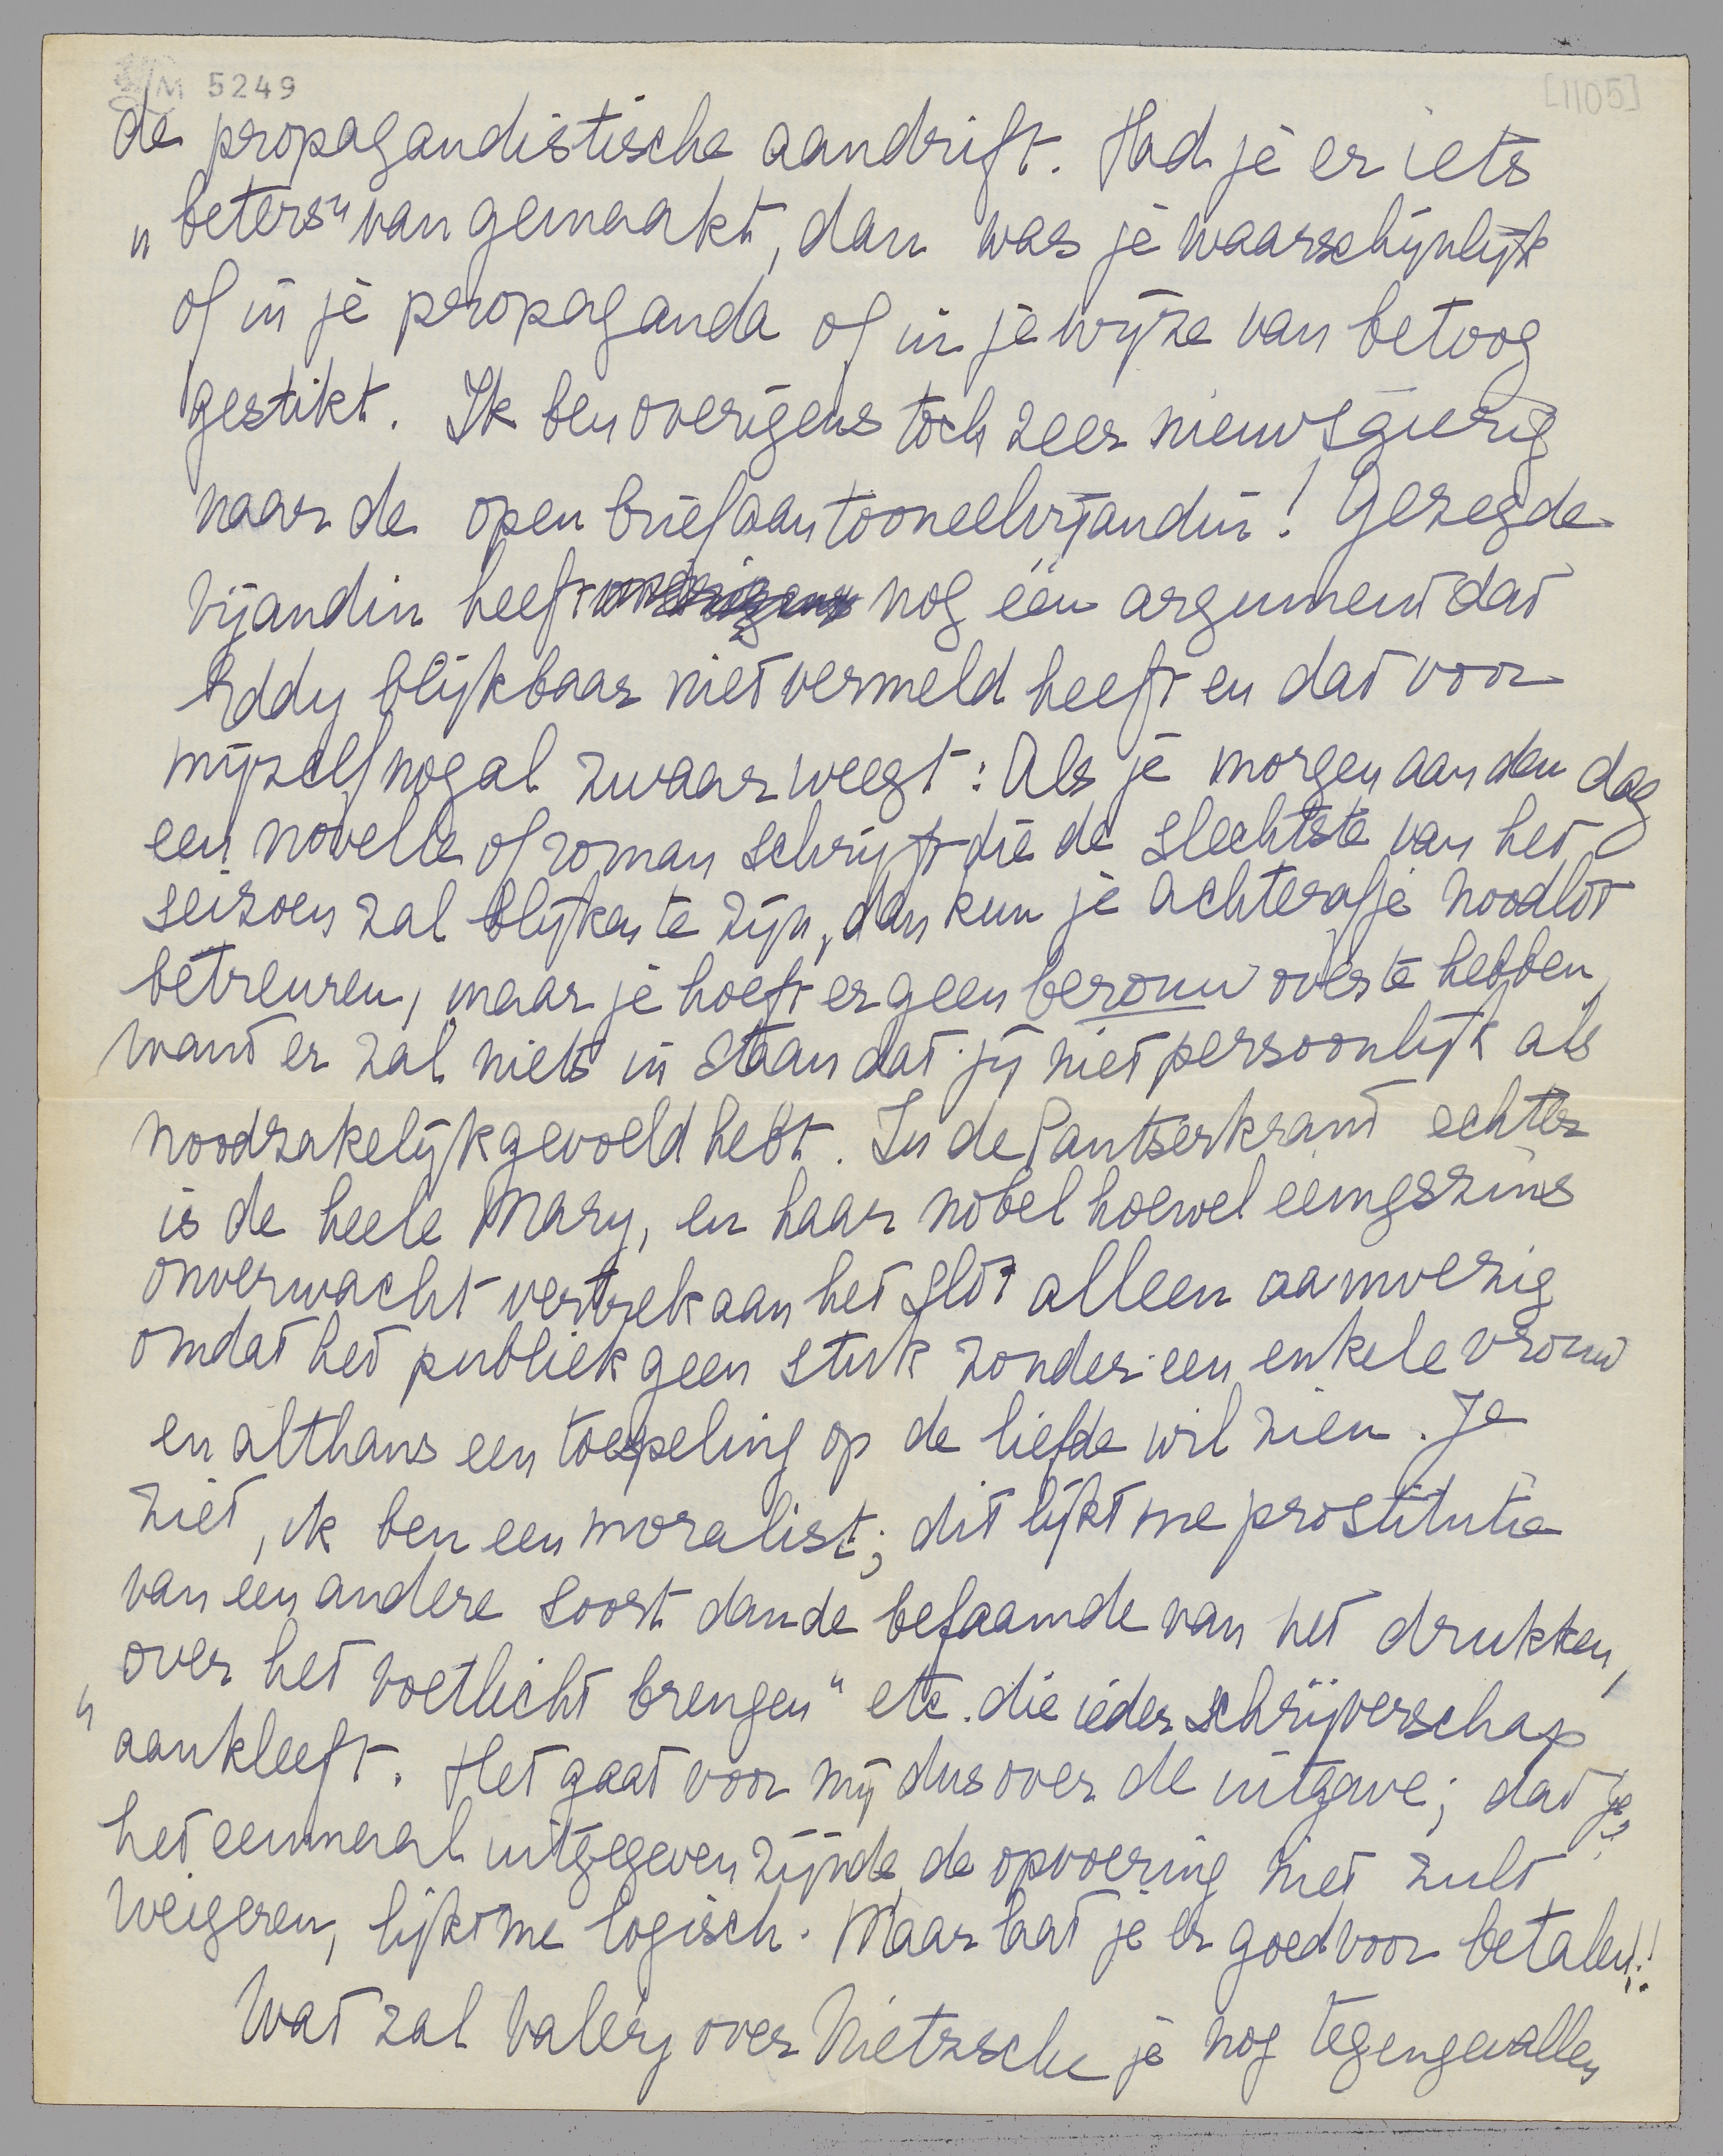 M 5249
[1105]
de propagandistische aandrift. Had je er iets
„beters" van gemaakt, dan was je waarschijnlijk
of in je propaganda of in je wijze van betoog
gestikt. Ik ben overigens toch zeer nieuwsgierig
naar de open brief aan tooneelvijandin! Gezegde
vijandin heeft nog één argument dat
Eddy blijkbaar niet vermeld heeft en dat voor
mijzelf nogal zwaar weegt: Als je morgen aan den dag
een novelle of roman schrijft die de slechtste van het
seizoen zal blijken te zijn, dan kun je achteraf je noodlot
betreuren, maar je hoeft er geen berouw over te hebben,
want er zal niets in staan dat jij niet persoonlijk als
noodzakelijk gevoeld hebt. In de Pantserkrant echter
is de heele Mary, en haar nobel hoewel eenigszins
onverwacht vertrek aan het slot alleen aanwezig
omdat het publiek geen stuk zonder een enkele vrouw
en althans een toespeling op de liefde wil zien. Je
ziet, ik ben een moralist; dit lijkt me prostitutie
van een andere soort dan de befaamde van het drukken,
„over het voetlicht brengen" etc. die ieder schrijverschap
aankleeft. Het gaat voor mij dus over de uitgave; dat je
het eenmaal uitgegeven zijnde de opvoering niet zult
weigeren, lijkt me logisch. Maar laat je er goed voor betalen!!
Wat zal Valéry over Nietzsche je nog tegengevallen